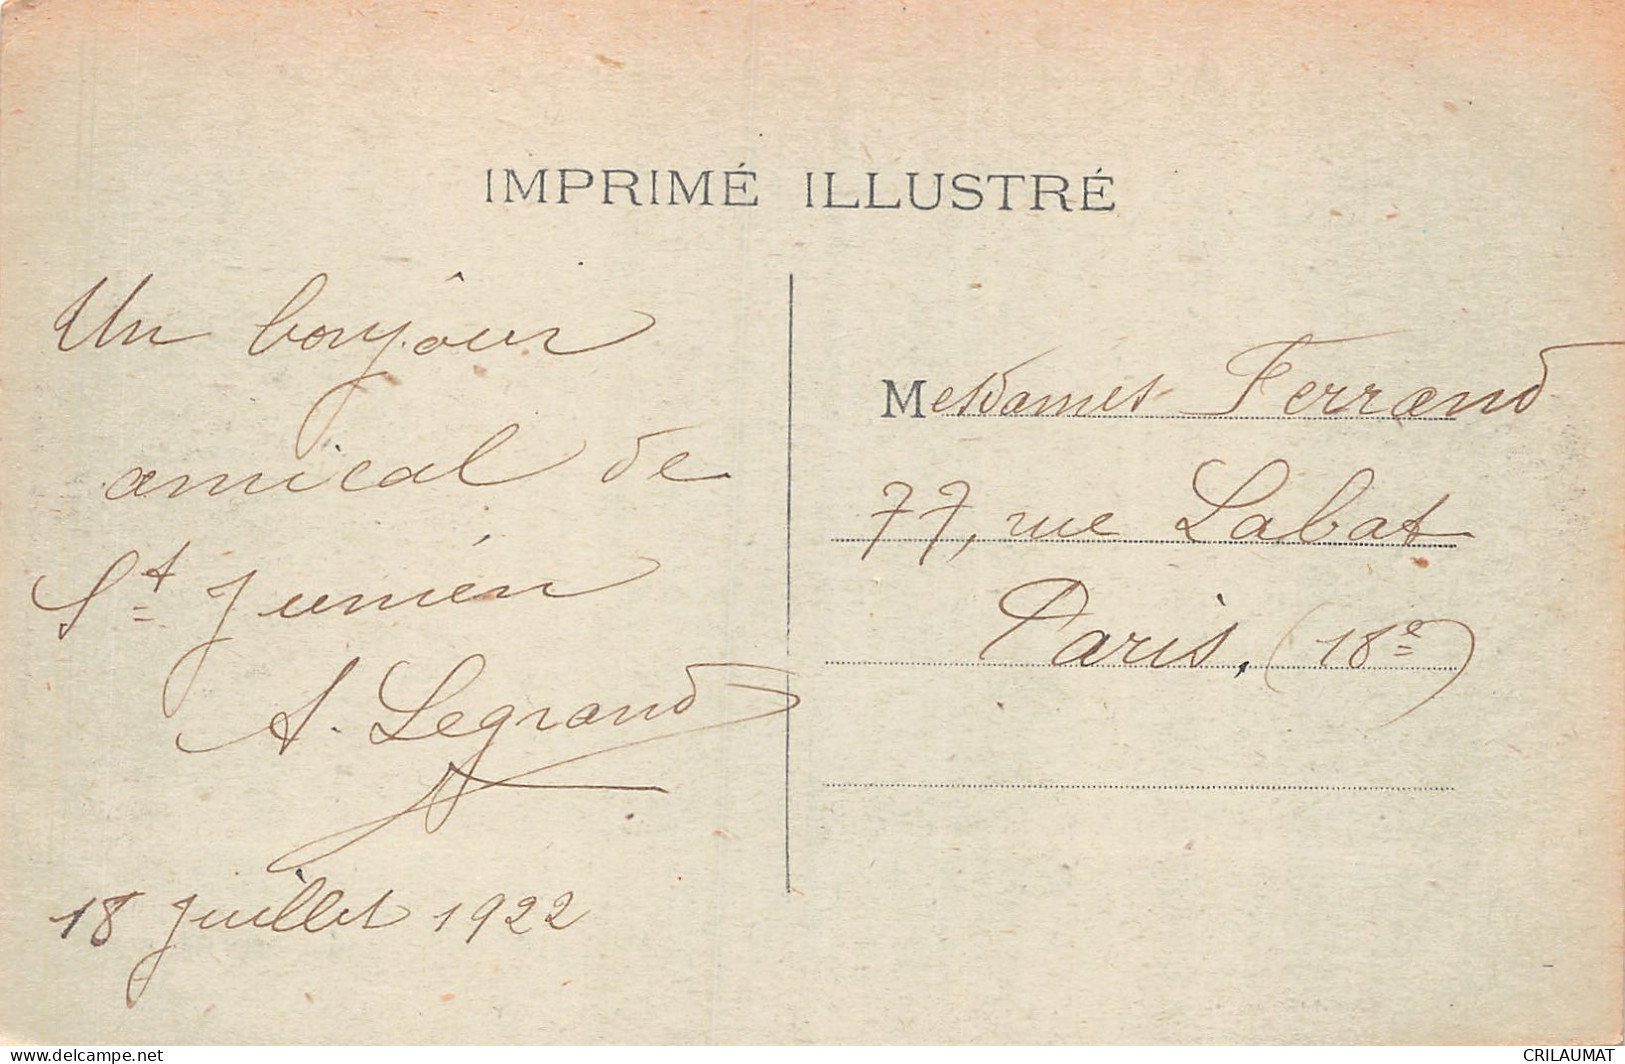 IMPRIMÉ ILLUSTRÉ
Un bonjour
amical de
St Junien
A. Legrand
18 Juillet 1922
Mesdames Ferrand
77, rue Labat
Paris. (18e)
delcampe.net
CRILAUMAT